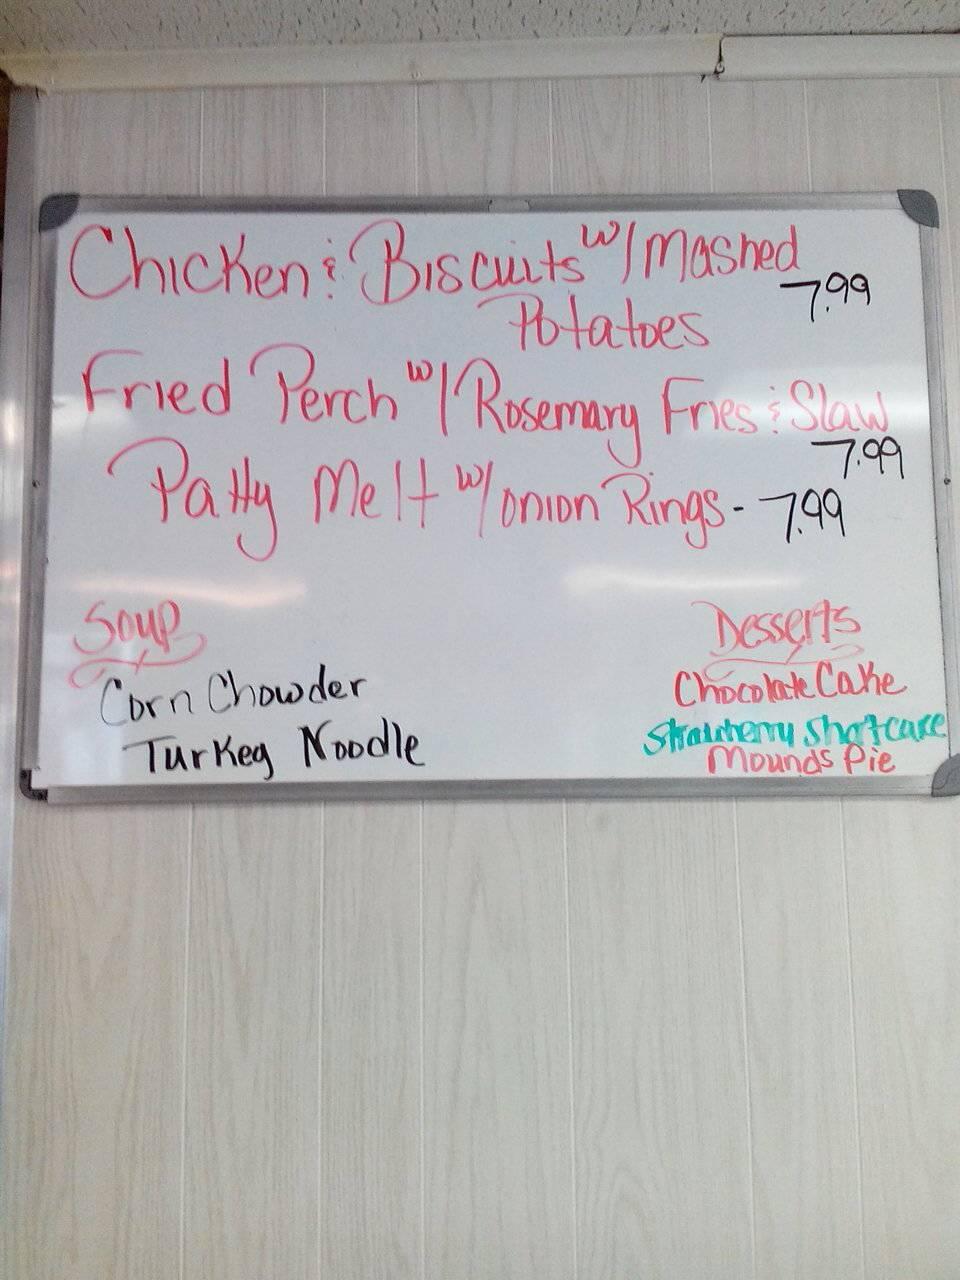 Chicken & Biscuits w/ Mashed
Potatoes 7.99
Fried Perch w/ Rosemary Fries & Slaw
7.99
Patty Melt w/ Onion Rings - 7.99
Soup
Corn Chowder
Turkey Noodle
Desserts
Chocolate Cake
Strawberry Shortcake
Mounds Pie